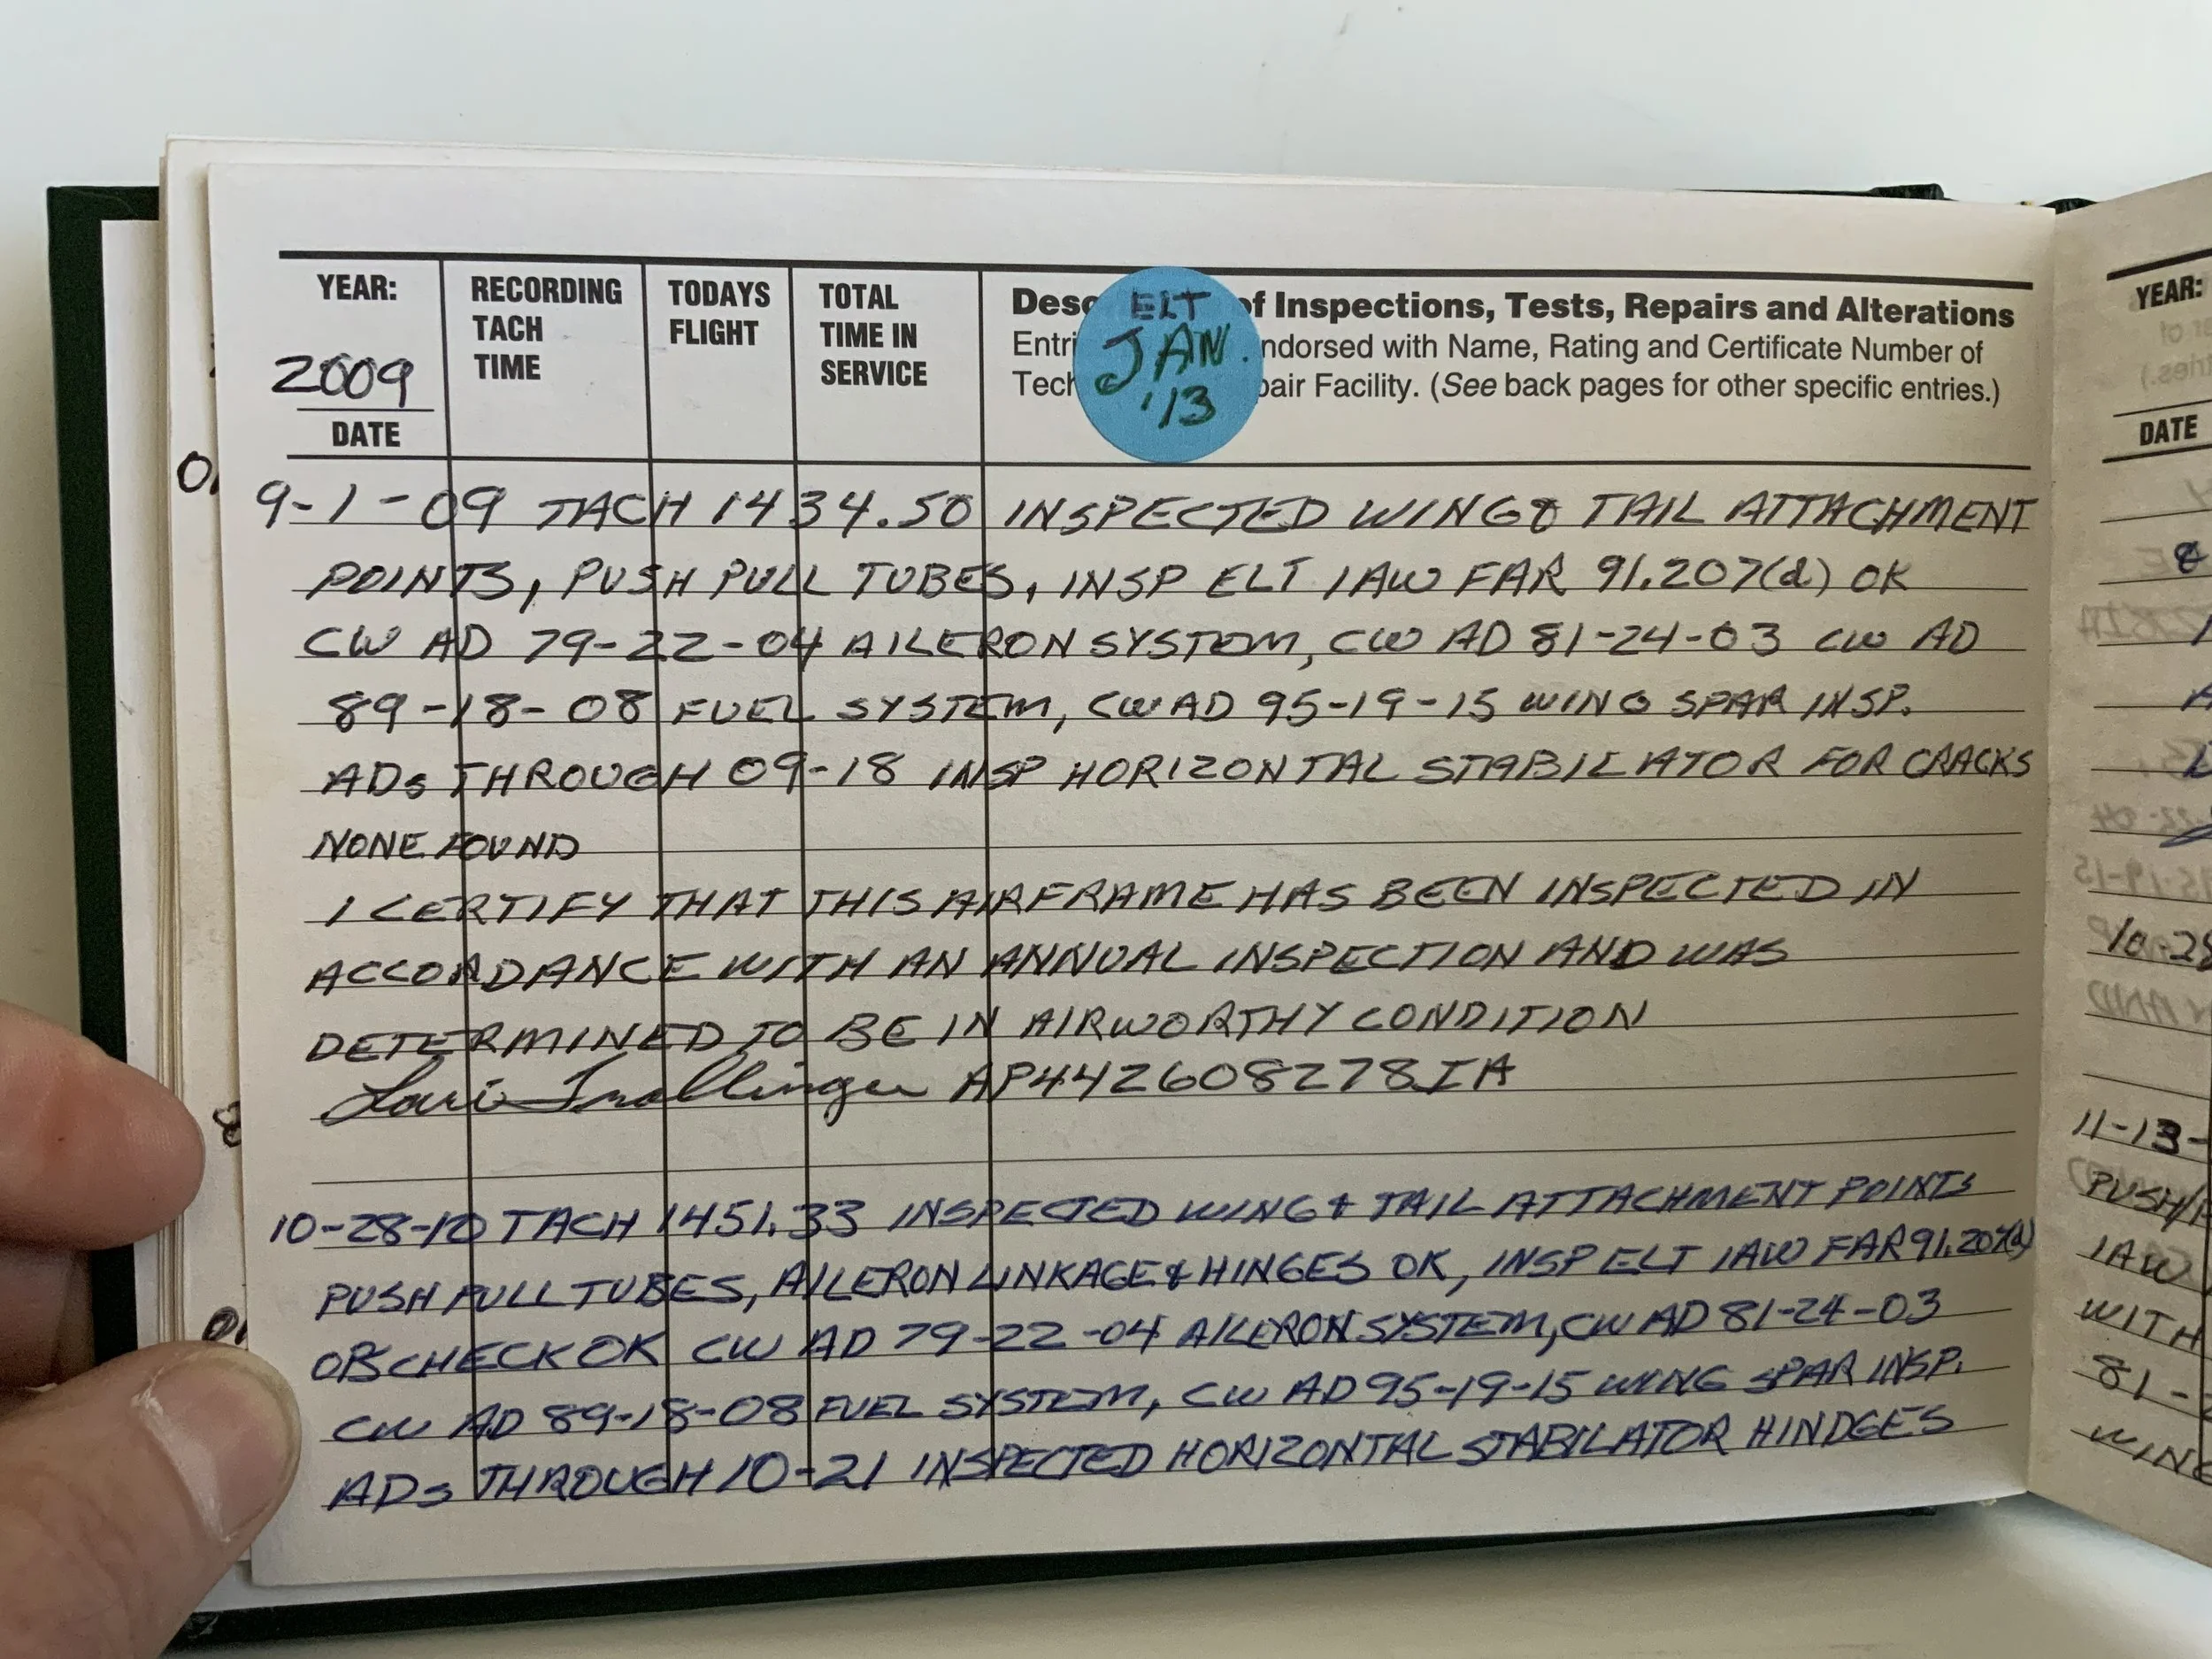 YEAR:
2009
DATE
RECORDING
TACH
TIME
TODAYS
FLIGHT
TOTAL
TIME IN
SERVICE
ELT
JAN.
'13
of Inspections, Tests, Repairs and Alterations
ndorsed with Name, Rating and Certificate Number of
pair Facility. (See back pages for other specific entries.)
9-1-09 TACH 1434.50 INSPECTED WING & TAIL ATTACHMENT
POINTS, PUSH PULL TUBES, INSP ELT IAW FAR 91.207(d) OK
CW AD 79-22-04 AILERON SYSTEM, CW AD 81-24-03 CW AD
89-18-08 FUEL SYSTEM, CW AD 95-19-15 WING SPAR INSP.
ADs THROUGH 09-18 INSP HORIZONTAL STABILATOR FOR CRACKS
NONE FOUND
I CERTIFY THAT THIS AIRFRAME HAS BEEN INSPECTED IN
ACCORDANCE WITH AN ANNUAL INSPECTION AND WAS
DETERMINED TO BE IN AIRWORTHY CONDITION
AP442608278IA
10-28-10 TACH 1451.33 INSPECTED WING & TAIL ATTACHMENT POINTS
PUSH PULL TUBES, AILERON LINKAGE & HINGES OK, INSP ELT IAW FAR 91.207(d)
OPS CHECK OK CW AD 79-22-04 AILERON SYSTEM, CW AD 81-24-03
CW AD 89-18-08 FUEL SYSTEM, CW AD 95-19-15 WING SPAR INSP.
ADs THROUGH 10-21 INSPECTED HORIZONTAL STABILATOR HINDGES
YEAR:
DATE
10-28
11-13-
PUSH/
IAW
WITH
81-
WING